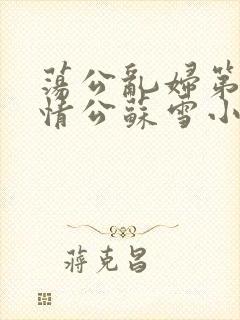 蕩公亂婦第
情公蘇雪小
蔣克昌